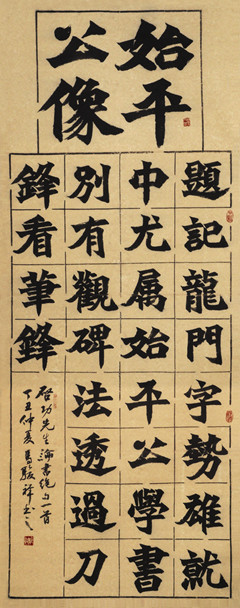 始平
公像
題記龍門字勢雄就
中尤属始平公學書
別有觀碑法透過刀
鋒看筆鋒
啓功先生論書绝句一首
丁丑仲夏馬駿祥书